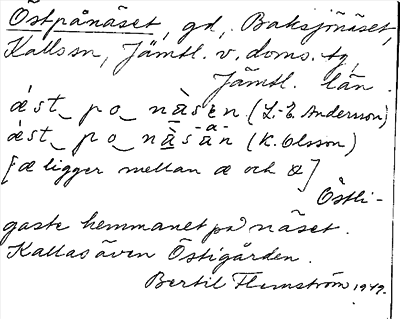 Östpånäset, gd, Baksjönäset,
Kallssn, Jämtl. v. doms. tg,
Jämtl. län.
ǽst_ po_ nä̀sen (L.-E. Andersson)
ǽst_ po_ nä̀sän (K. Olsson)
[æ ligger mellan æ och a]
Östli-
gaste hemmanet på näset.
Kallas även Östigården.
Bertil Flemström 1949.